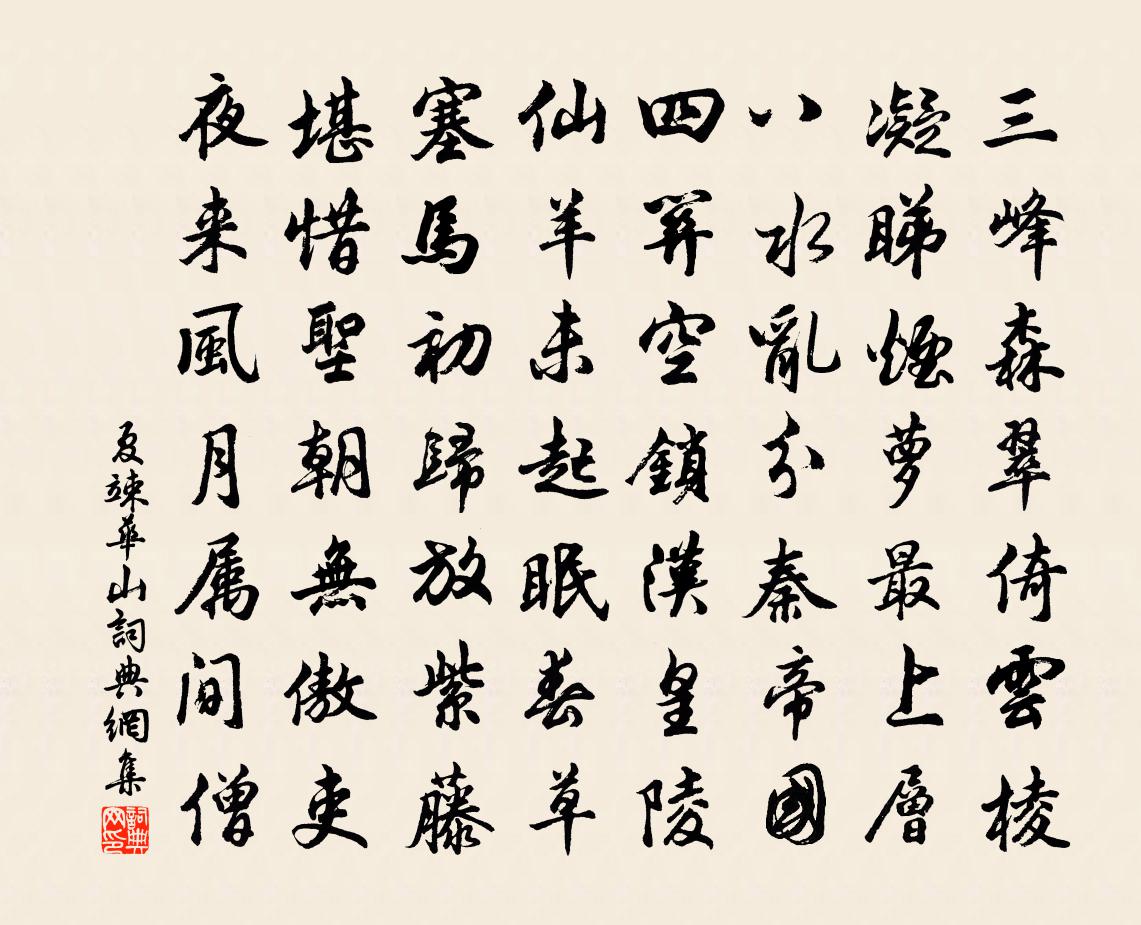 三峰森翠倚雲棱
凝睇煙萝最上層
八水亂分秦帝國
四關空鎖漢皇陵
仙羊未起眠春草
塞馬初歸放紫藤
堪惜聖朝無傲吏
夜来風月属閒僧
夏竦華山詞典網集
詞典网印